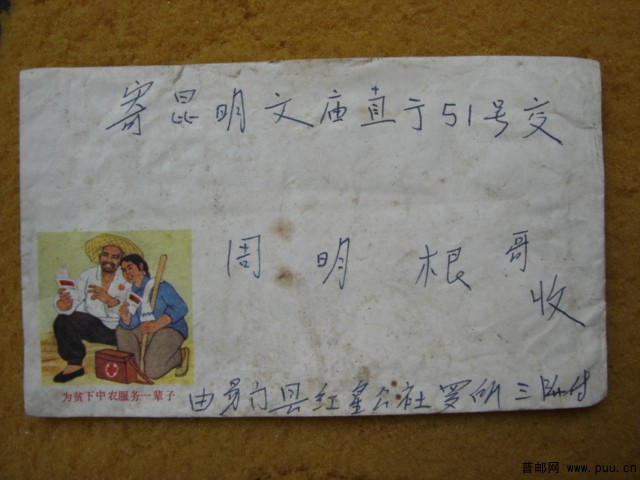 寄昆明文庙直于51号交
周明根哥
收
为贫下中农服务一辈子
由易门县红星公社罗所三
普邮网 www.puu.cn